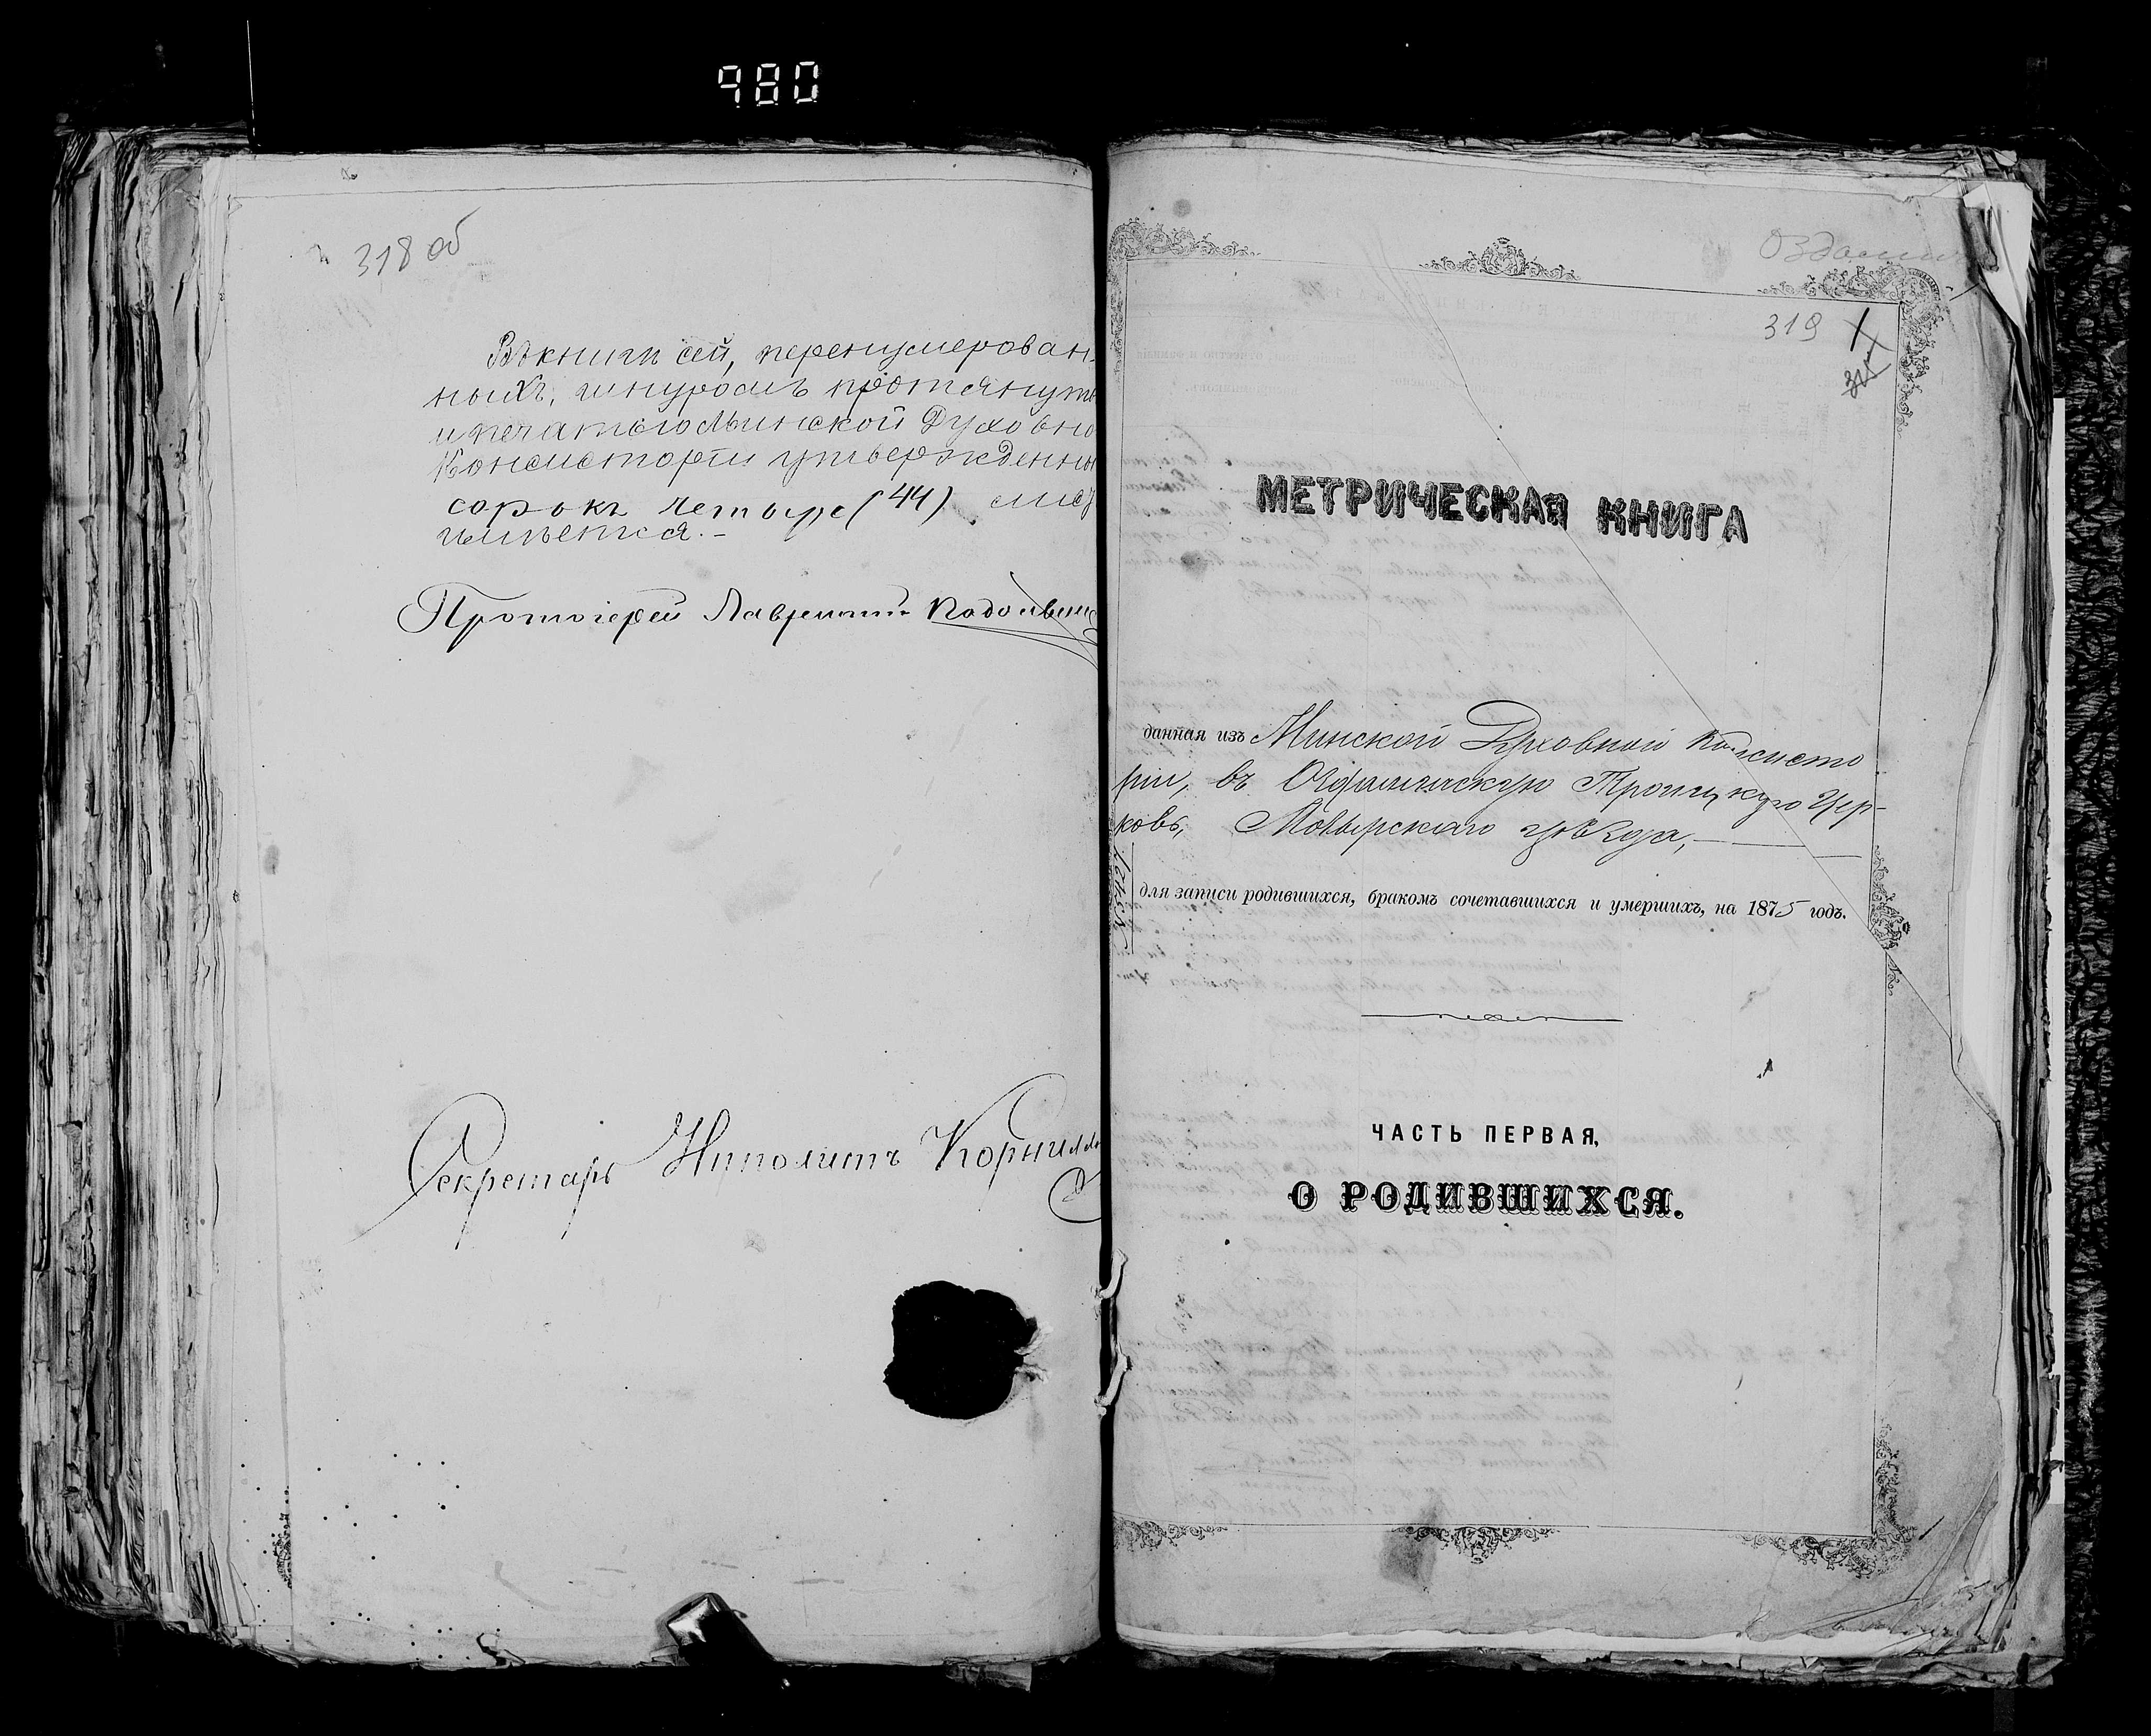 980
318 об
Въ книги сей, перенумерован-
ныхъ, шнуромъ протянуты
и печатью Минской Духовно
Консисторіи утвержденны
сорокъ четыре (44) лис
имѣется. –
Протоіерей Лаврентій
Секретарь Ипполитъ Корнил
319
МЕТРИЧЕСКАЯ КНИГА
данная изъ Минской Духовной Консисто
ріи, въ Троицкую Цер-
ковь, Мозырскаго уѣзда,
для записи родившихся, бракомъ сочетавшихся и умершихъ, на 1875 годъ.
ЧАСТЬ ПЕРВАЯ,
О РОДИВШИХСЯ.